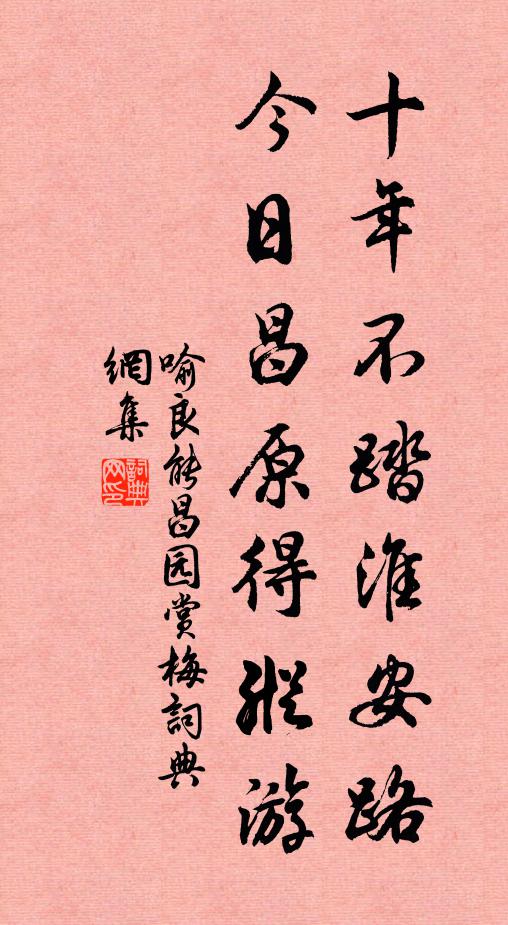 十年不踏淮安路
今日昌原得縱游
喻良能昌园赏梅詞典
網集
詞典网印